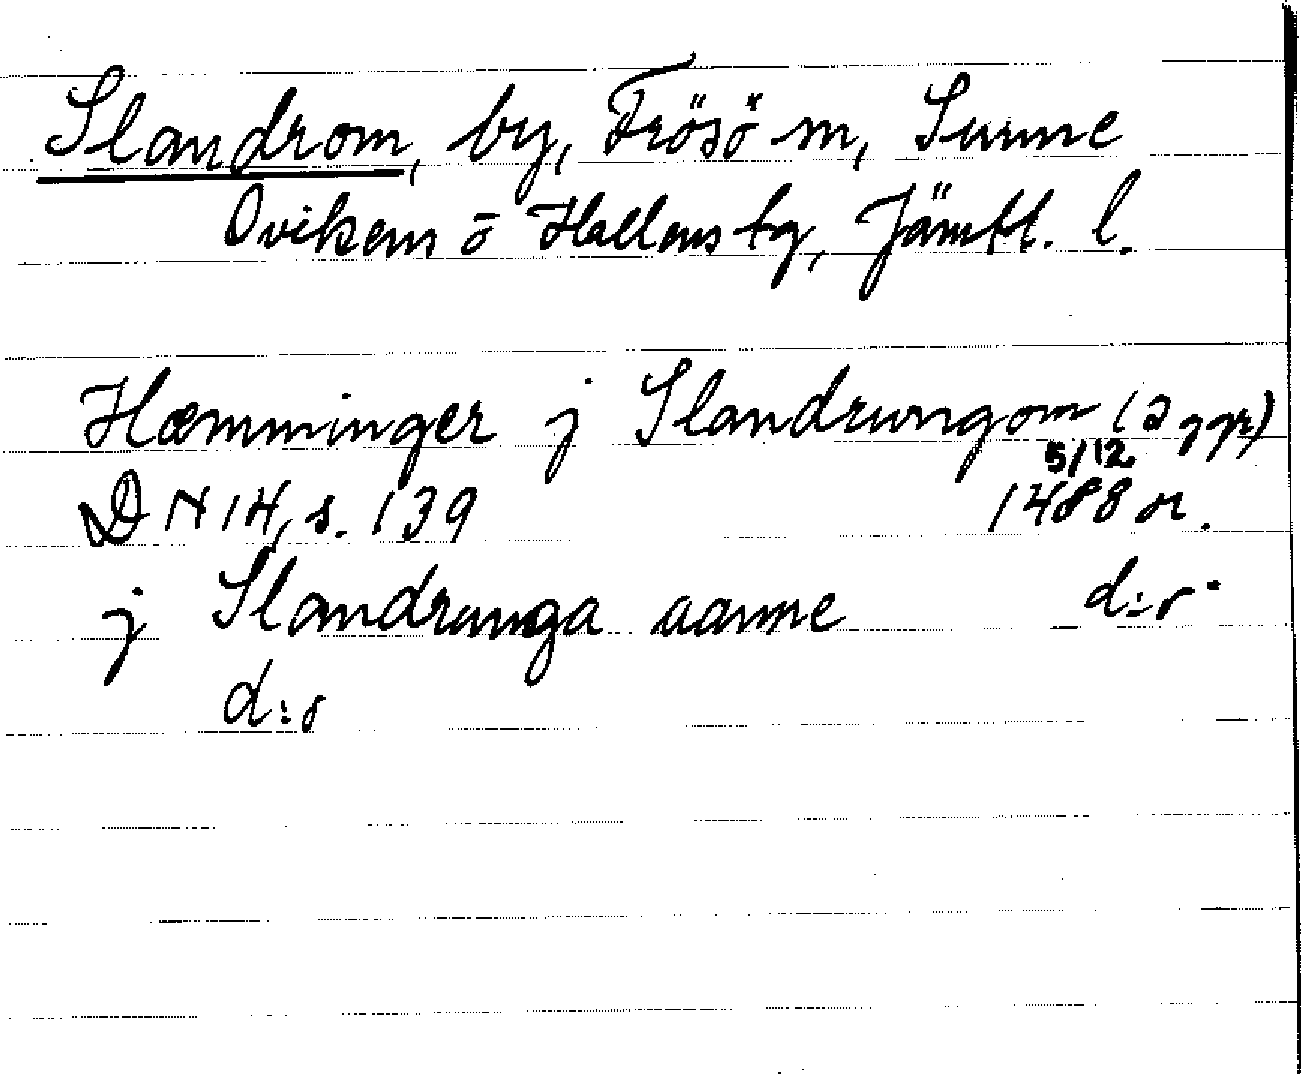 Slandrom, by, Frösö sn, Sunne
Ovikens o Hallens tg, Jämtl. l.
Hæmminger j Slandrungom (2 ggr)
5/12
DN 14, s. 139 1488 or.
j Slandrunga aanne d:o
d:o